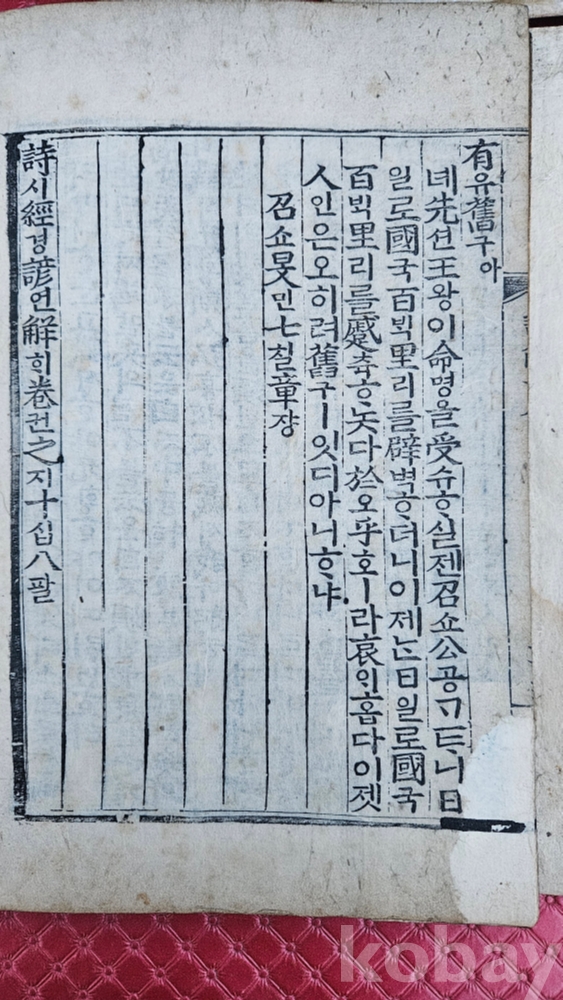 有유舊구아
녜先션王왕이命명을受슈ᄒᆞ실젠召쇼公공ᄀᆞᄐᆞ니日
일로國국百ᄇᆡᆨ里리를辟벽ᄒᆞ더니이제ᄂᆞᆫ日일로國국
百ᄇᆡᆨ里리를蹙축ᄒᆞ놋다於오乎호ㅣ라哀ᄋᆡ홉다이젯
人인은오히려舊구ㅣ잇디아니ᄒᆞ냐
召쇼旻민七칠章쟝
詩시經경諺언解ᄒᆡ卷권之지十십八팔
kobay